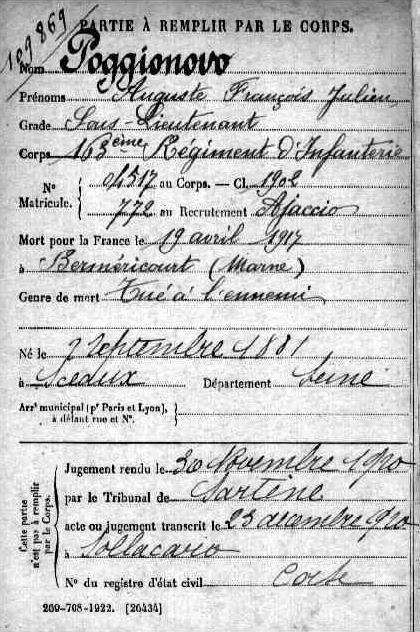 PARTIE À REMPLIR PAR LE CORPS.
129869
Nom Poggionovo
Prénoms Auguste François Julien
Grade Sous-Lieutenant
Corps 163ème Régiment d'Infanterie
N° Matricule. { 01517 au Corps. — Cl. 1902
772 au Recrutement Ajaccio
Mort pour la France le 19 avril 1917
à Berméricourt (Marne)
Genre de mort Tué à l'ennemi
Né le 7 Septembre 1881
à Sceaux Département Seine
Arrt municipal (pr Paris et Lyon), à défaut rue et N°. }
Cette partie n'est pas à remplir par le Corps.
Jugement rendu le 30 Novembre 1920
par le Tribunal de Sartène
acte ou jugement transcrit le 23 décembre 1920
à Sollacaro
N° du registre d'état civil Corse
269-708-1922. [26434]